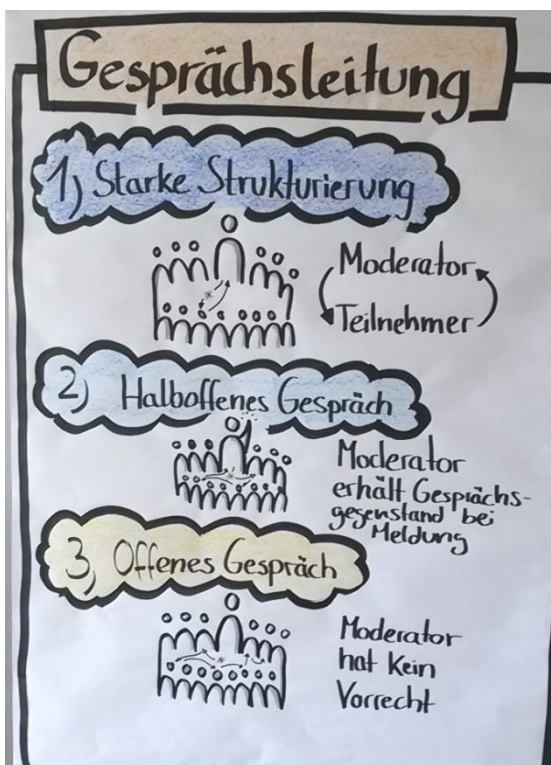 Gesprächsleitung
1) Starke Strukturierung
Moderator
Teilnehmer
2) Halboffenes Gespräch
Moderator
erhält Gesprächs-
gegenstand bei
Meldung
3) Offenes Gespräch
Moderator
hat kein
Vorrecht